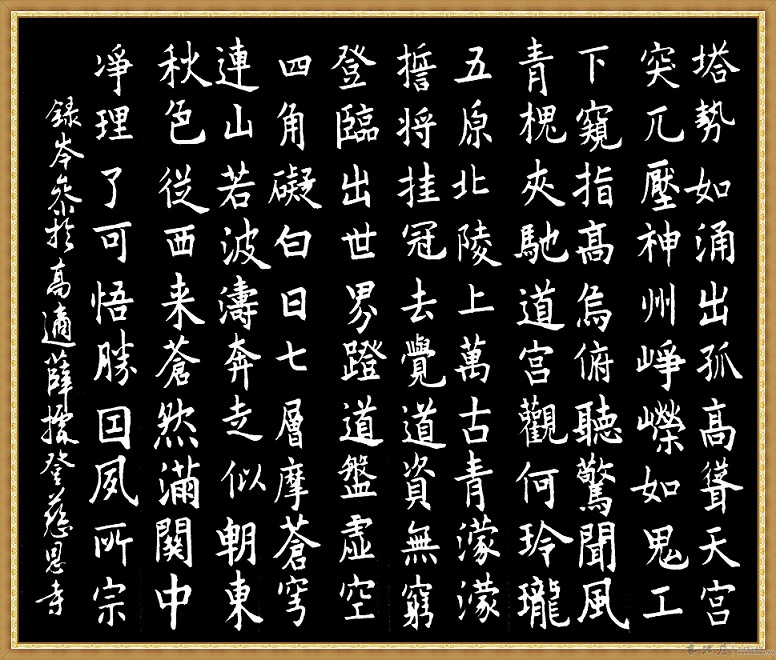 塔勢如涌出孤高聳天宮
突兀壓神州崢嶸如鬼工
下窺指高鳥俯聽驚聞風
青槐夾馳道宮觀何玲瓏
五原北陵上萬古青濛濛
誓将挂冠去覺道資無窮
登臨出世界蹬道盤虛空
四角礙白日七層摩蒼穹
連山若波濤奔走似朝東
秋色從西来蒼然滿關中
淨理了可悟勝因夙所宗
録岑參於高適薛據登慈恩寺